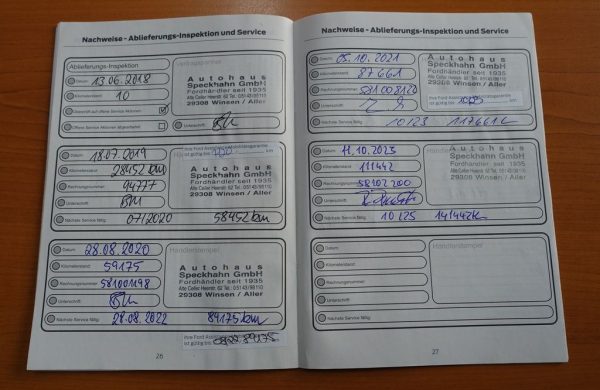 Nachweise - Ablieferungs-Inspektion und Service
Ablieferungs-Inspektion
Datum: 13.06.2018
Kilometerstand: 10
Autohaus
Speckhahn GmbH
Fordhändler seit 1935
29308 Winsen / Aller
Unterschrift:
Ihre Ford Assistance Mobilitätsgarantie
ist gültig bis km
Datum: 18.07.2019
Kilometerstand: 28452 km
Rechnungsnummer: 94777
Unterschrift:
Nächste Service fällig: 07/2020 58452 km
Autohaus
Speckhahn GmbH
Fordhändler seit 1935
29308 Winsen / Aller
Datum: 28.08.2020
Kilometerstand: 59175
Rechnungsnummer: 581001198
Unterschrift:
Nächste Service fällig: 28.08.2022 89175 km
Händlerstempel
Autohaus
Speckhahn GmbH
Fordhändler seit 1935
29308 Winsen / Aller
Ihre Ford Assistance
ist gültig bis 89175
26
Nachweise - Ablieferungs-Inspektion und Service
Datum: 05.10.2021
Kilometerstand: 87661
Rechnungsnummer:
Unterschrift:
Nächste Service fällig: 10/23 117661 K
Autohaus
Speckhahn GmbH
Fordhändler seit 1935
29308 Winsen / Aller
Ihre Ford Assistance Mobilitätsgarantie
ist gültig bis 10/23 km
Datum: 11.10.2023
Kilometerstand: 111442
Rechnungsnummer: 58102200
Unterschrift:
Nächste Service fällig: 10/25 141442 K
Autohaus
Speckhahn GmbH
Fordhändler seit 1935
29308 Winsen / Aller
Datum:
Kilometerstand:
Rechnungsnummer:
Unterschrift:
Nächste Service fällig:
Händlerstempel
27